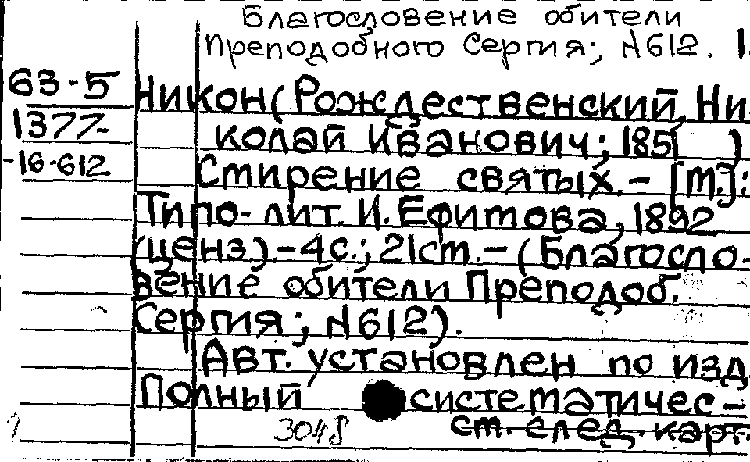 Благословение обители
Преподобного Сергия;, N612.
63-5
1377-
-16-612
Никон (Рождественский, Ни-
колай Иванович; 1851 )
Смирение святых. - [М.]:
Типо-лит. И. Ефимова, 1892
(ценз). - 4с.; 21см. - (Благосло-
вение обители Преподоб.
Сергия; N612).
Авт. установлен по изд.
Полный систематичес-
3048 см. след. карт.